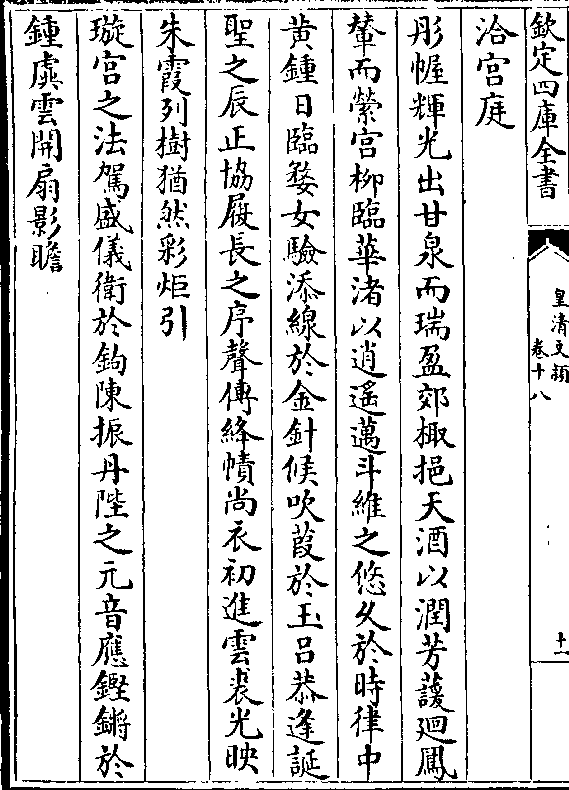 欽定四庫全書
皇清文穎
卷十八
十一
洽宫庭
彤幄輝光出甘泉而瑞盈郊棷挹天酒以潤芳蘐廻鳳
輦而縈宫柳臨華渚以逍遥邁斗維之悠久於時律中
黄鍾日臨婺女驗添線於金針候吹葭於玉吕恭逢誕
聖之辰正協履長之序聲傳絳幘尚衣初進雲裘光映
朱霞列樹猶然彩炬引
璇宫之法駕盛儀衛於鈎陳振丹陛之元音應鏗鏘於
鍾虡雲開扇影瞻